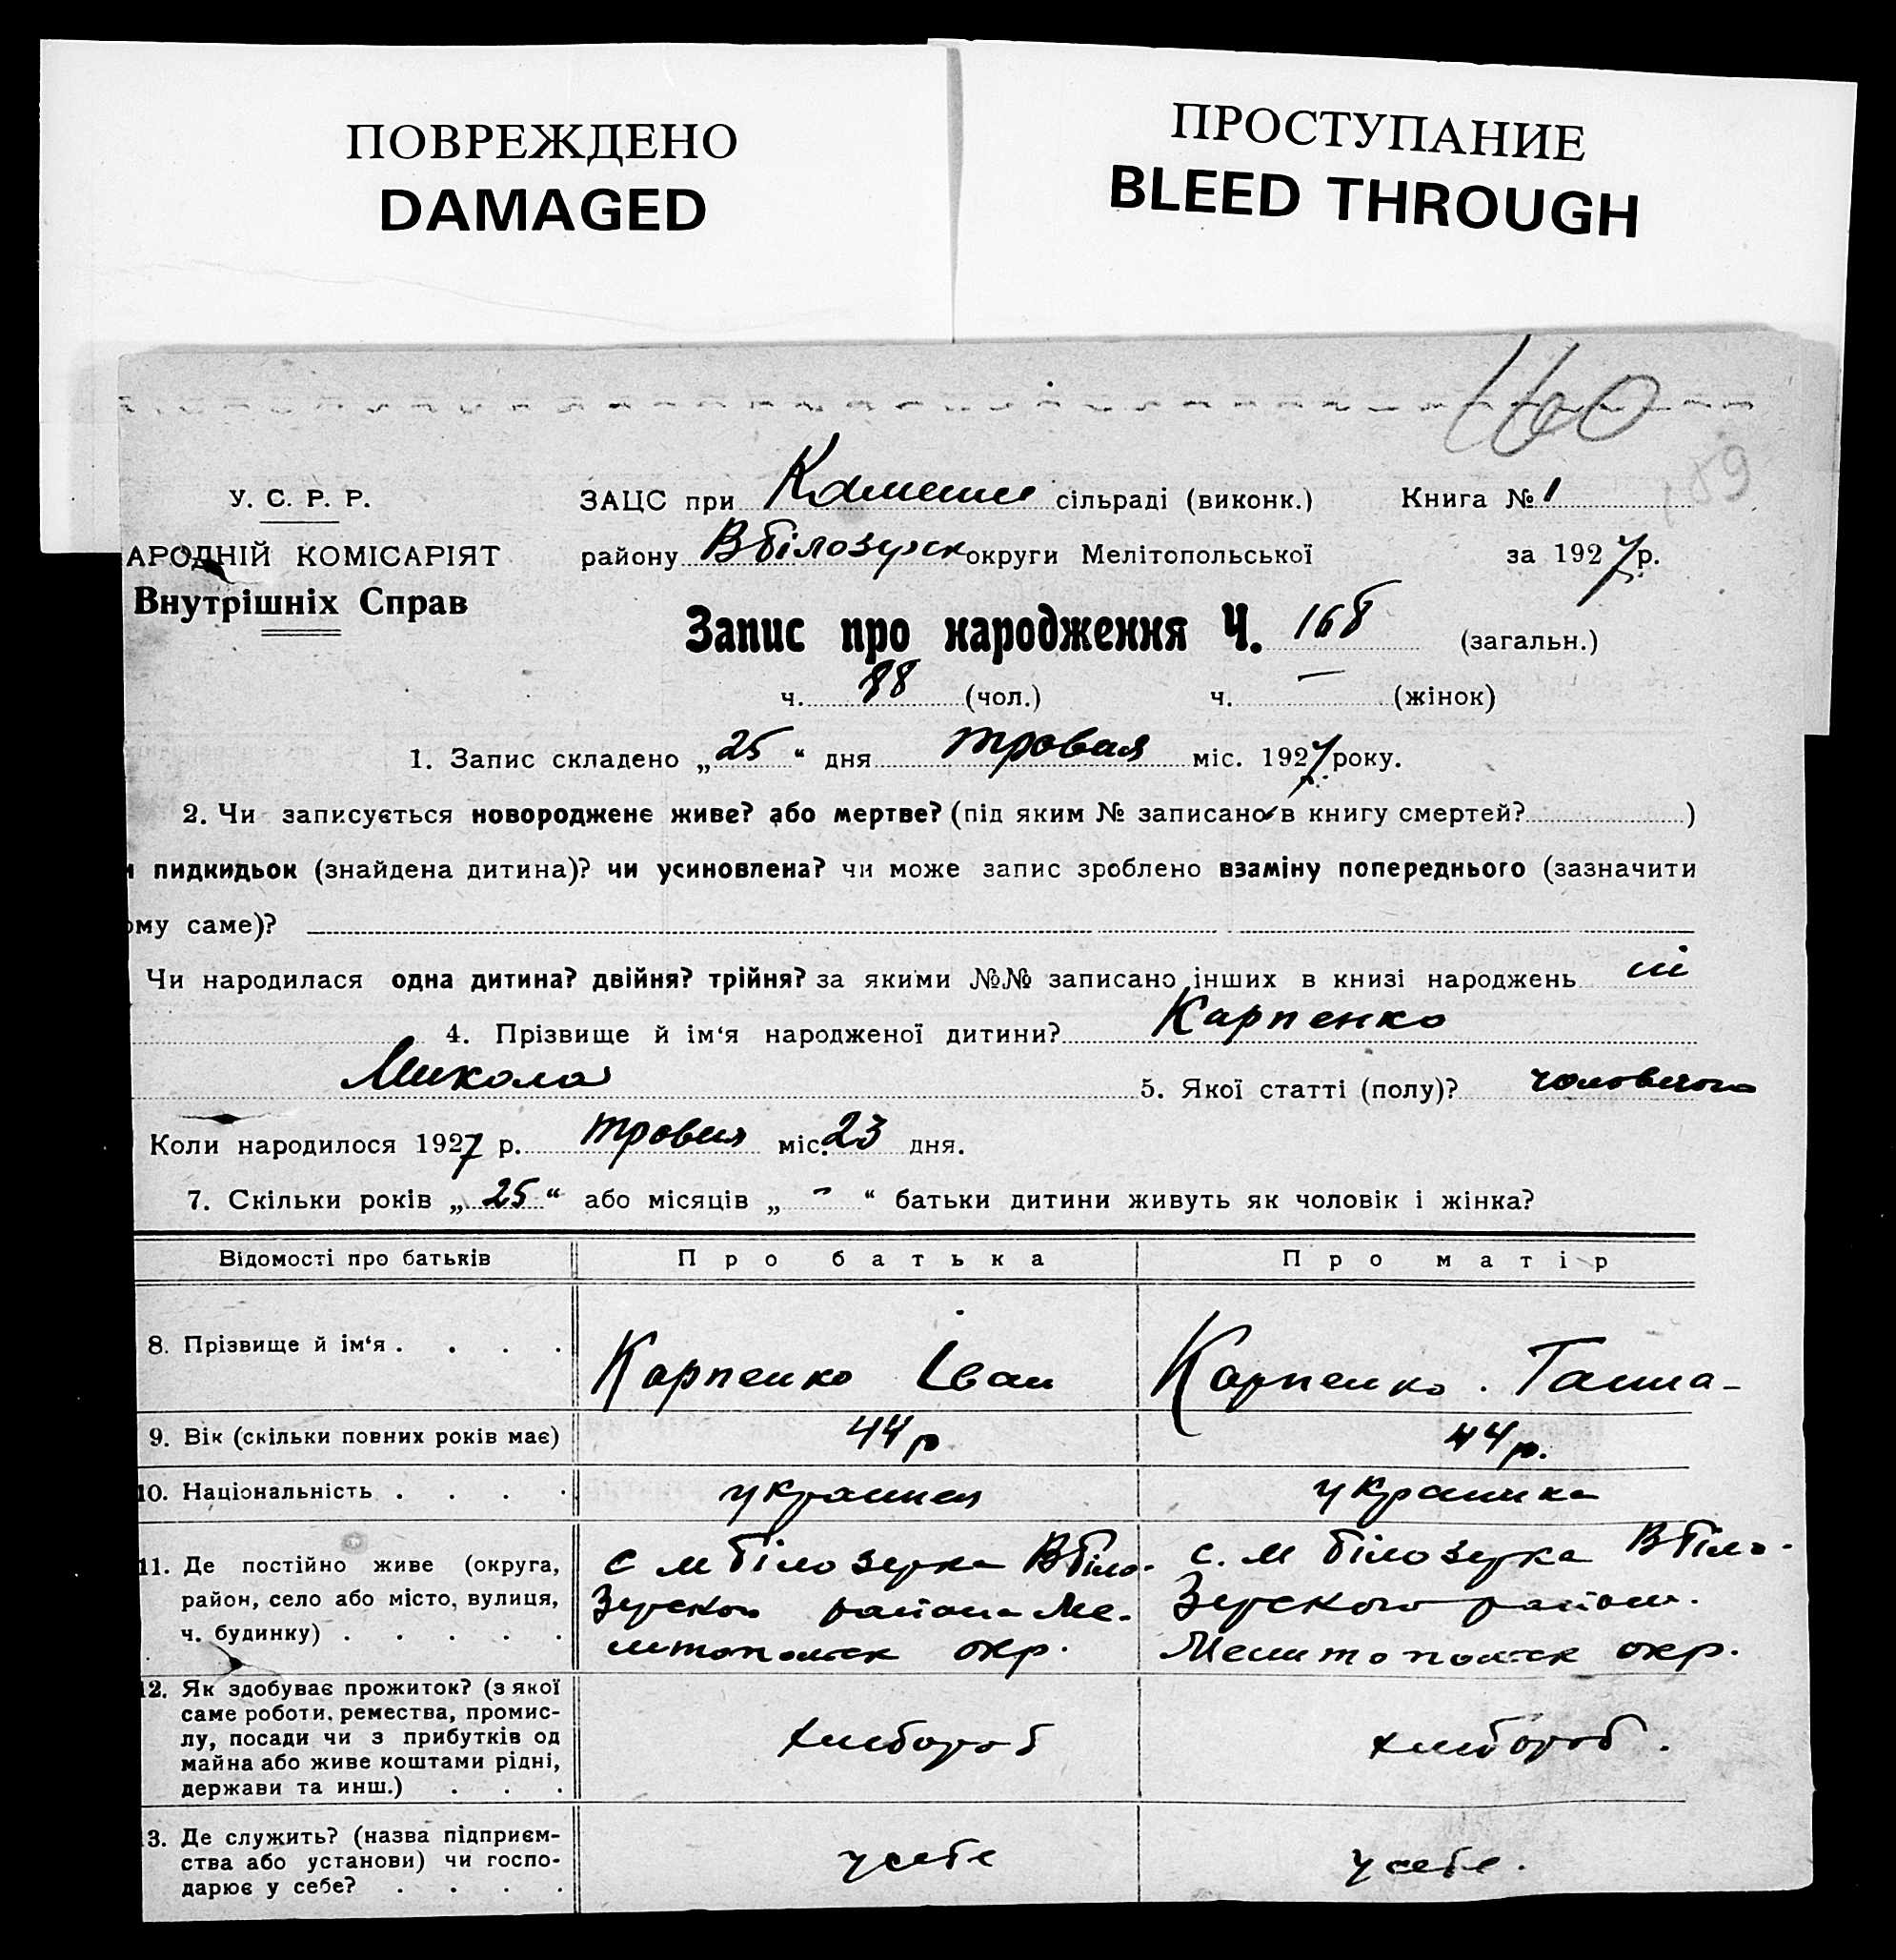 ПОВРЕЖДЕНО
DAMAGED
ПРОСТУПАНИЕ
BLEED THROUGH
160
189
У. С. Р. Р.
АРОДНІЙ КОМІСАРІЯТ
Внутрішніх Справ
ЗАЦС при сільраді (виконк.) Книга № 1
району Вбілозерск округи Мелітопольської за 1927 р.
Запис про народження Ч. 168 (загальн.)
ч. 88 (чол.) ч. — (жінок)
1. Запис складено „25“ дня травня міс. 1927 року.
2. Чи записується новороджене живе? або мертве? (під яким № записано в книгу смертей? )
и пидкидьок (знайдена дитина)? чи усиновлена? чи може запис зроблено взаміну попереднього (зазначити
ому саме)?
Чи народилася одна дитина? двійня? трійня? за якими №№ записано інших в книзі народжень ні
4. Прізвище й ім‘я народженої дитини? Карпенко
Микола 5. Якої статті (полу)? чоловічого
Коли народилося 1927 р. травня міс. 23 дня.
7. Скільки років „25“ або місяців „-“ батьки дитини живуть як чоловік і жінка?
Відомості про батьків Про батька Про матір
8. Прізвище й ім‘я . . . . Карпенко Іван Карпенко. Ганна-
9. Вік (скільки повних років має) 44 р 44 р.
10. Національність . . . . українец українка
11. Де постійно живе (округа, с м білозерка Вбіло- с. м білозерка Вбіло-
район, село або місто, вулиця, Зерского района Ме- Зерского район.
ч. будинку) . . . . . литопольск окр. Мелитопольск окр.
12. Як здобуває прожиток? (з якої
саме роботи, ремества, промис-
лу, посади чи з прибутків од хлібороб хлібороб.
майна або живе коштами рідні,
держави та инш.) . . .
3. Де служить? (назва підприєм-
ства або установи) чи госпо- у себе у себе.
дарює у себе? . . . .